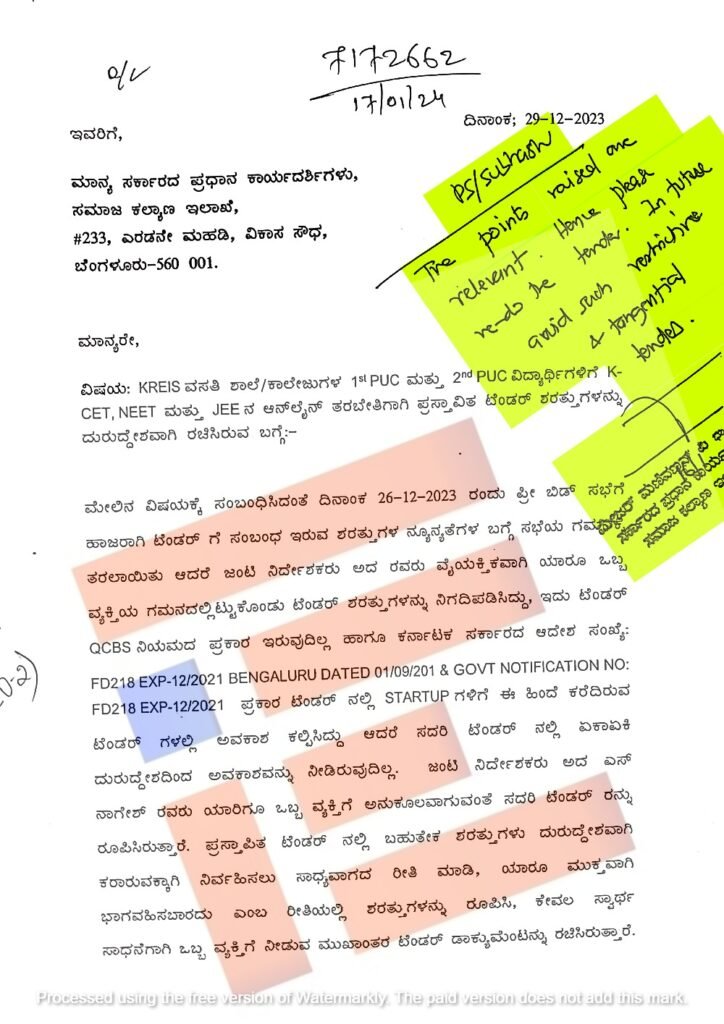 7172662
17/01/24
ದಿನಾಂಕ; 29-12-2023
ಇವರಿಗೆ,
ಮಾನ್ಯ ಸರ್ಕಾರದ ಪ್ರಧಾನ ಕಾರ್ಯದರ್ಶಿಗಳು,
ಸಮಾಜ ಕಲ್ಯಾಣ ಇಲಾಖೆ,
#233, ಎರಡನೇ ಮಹಡಿ, ವಿಕಾಸ ಸೌಧ,
ಬೆಂಗಳೂರು-560 001.
PS/Subhash
The points raised are
relevant. Hence please
re-do the tender. In future
avoid such restrictive
& tangential
tender.
ಮಾನ್ಯರೇ,
ವಿಷಯ: KREIS ವಸತಿ ಶಾಲೆ/ಕಾಲೇಜುಗಳ 1st PUC ಮತ್ತು 2nd PUC ವಿದ್ಯಾರ್ಥಿಗಳಿಗೆ K-
CET, NEET ಮತ್ತು JEE ನ ಆನ್‌ಲೈನ್ ತರಬೇತಿಗಾಗಿ ಪ್ರಸ್ತಾವಿತ ಟೆಂಡರ್ ಶರತ್ತುಗಳನ್ನು
ದುರುದ್ದೇಶವಾಗಿ ರಚಿಸಿರುವ ಬಗ್ಗೆ:-
ಸರ್ಕಾರದ ಪ್ರಧಾನ
ಸಮಾಜ ಕಲ್ಯಾಣ
ಮೇಲಿನ ವಿಷಯಕ್ಕೆ ಸಂಬಂಧಿಸಿದಂತೆ ದಿನಾಂಕ 26-12-2023 ರಂದು ಪ್ರೀ ಬಿಡ್ ಸಭೆಗೆ
ಹಾಜರಾಗಿ ಟೆಂಡರ್ ಗೆ ಸಂಬಂಧ ಇರುವ ಶರತ್ತುಗಳ ನ್ಯೂನ್ಯತೆಗಳ ಬಗ್ಗೆ ಸಭೆಯ ಗಮನಕ್ಕೆ
ತರಲಾಯಿತು ಆದರೆ ಜಂಟಿ ನಿರ್ದೇಶಕರು ಅದ ರವರು ವೈಯಕ್ತಿಕವಾಗಿ ಯಾರೂ ಒಬ್ಬ
ವ್ಯಕ್ತಿಯ ಗಮನದಲ್ಲಿಟ್ಟುಕೊಂಡು ಟೆಂಡರ್ ಶರತ್ತುಗಳನ್ನು ನಿಗದಿಪಡಿಸಿದ್ದು, ಇದು ಟೆಂಡರ್
QCBS ನಿಯಮದ ಪ್ರಕಾರ ಇರುವುದಿಲ್ಲ ಹಾಗೂ ಕರ್ನಾಟಕ ಸರ್ಕಾರದ ಆದೇಶ ಸಂಖ್ಯೆ:
FD218 EXP-12/2021 BENGALURU DATED 01/09/201 & GOVT NOTIFICATION NO:
FD218 EXP-12/2021 ಪ್ರಕಾರ ಟೆಂಡರ್ ನಲ್ಲಿ STARTUP ಗಳಿಗೆ ಈ ಹಿಂದೆ ಕರೆದಿರುವ
ಟೆಂಡರ್ ಗಳಲ್ಲಿ ಅವಕಾಶ ಕಲ್ಪಿಸಿದ್ದು ಆದರೆ ಸದರಿ ಟೆಂಡರ್ ನಲ್ಲಿ ಏಕಾಏಕಿ
ದುರುದ್ದೇಶದಿಂದ ಅವಕಾಶವನ್ನು ನೀಡಿರುವುದಿಲ್ಲ. ಜಂಟಿ ನಿರ್ದೇಶಕರು ಅದ ಎಸ್
ನಾಗೇಶ್ ರವರು ಯಾರಿಗೂ ಒಬ್ಬ ವ್ಯಕ್ತಿಗೆ ಅನುಕೂಲವಾಗುವಂತೆ ಸದರಿ ಟೆಂಡರ್ ರನ್ನು
ರೂಪಿಸಿರುತ್ತಾರೆ. ಪ್ರಸ್ತಾಪಿತ ಟೆಂಡರ್ ನಲ್ಲಿ ಬಹುತೇಕ ಶರತ್ತುಗಳು ದುರುದ್ದೇಶವಾಗಿ
ಕರಾರುವಕ್ಕಾಗಿ ನಿರ್ವಹಿಸಲು ಸಾಧ್ಯವಾಗದ ರೀತಿ ಮಾಡಿ, ಯಾರೂ ಮುಕ್ತವಾಗಿ
ಭಾಗವಹಿಸಬಾರದು ಎಂಬ ರೀತಿಯಲ್ಲಿ ಶರತ್ತುಗಳನ್ನು ರೂಪಿಸಿ, ಕೇವಲ ಸ್ವಾರ್ಥ
ಸಾಧನೆಗಾಗಿ ಒಬ್ಬ ವ್ಯಕ್ತಿಗೆ ನೀಡುವ ಮುಖಾಂತರ ಟೆಂಡರ್ ಡಾಕ್ಯುಮೆಂಟನ್ನು ರಚಿಸಿರುತ್ತಾರೆ.
Processed using the free version of Watermarkly. The paid version does not add this mark.